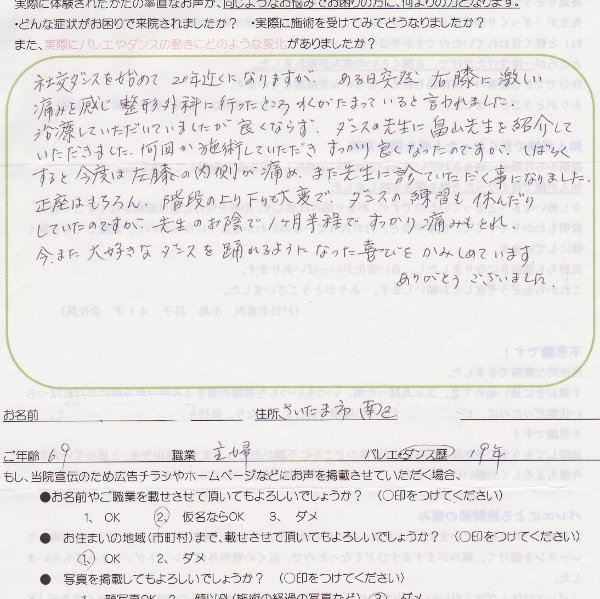 実際に体験されたかたの率直なお声が、同じようなお悩みでお困りの方に、何よりの力となります。
・どんな症状がお困りで来院されましたか？ ・実際に施術を受けてみてどうなりましたか？
また、実際にバレエやダンスの動きにどのような変化がありましたか？
社交ダンスを始めて 20年近くになりますが、ある日突然 右膝に激しい
痛みを感じ 整形外科に行ったところ 水がたまっていると言われました。
治療していただいていましたが 良くならず、ダンスの先生に 畠山先生を紹介して
いただきました。何回か施術していただき すっかり良くなったのですが、しばらく
すると今度は左膝の内側が痛み、また先生に診ていただく事になりました。
正座はもちろん、階段の上り下りも大変で、ダンスの練習も休んだり
していたのですが、先生のお陰で1ヶ月半程で すっかり痛みもとれ、
今また 大好きな ダンスを踊れるようになった喜びを かみしめています。
ありがとう ございました。
お名前 住所 さいたま市 南区
ご年齢 69 職業 主婦 バレエ・ダンス歴 19年
もし、当院宣伝のため広告チラシやホームページなどにお声を掲載させていただく場合、
●お名前やご職業を載せさせて頂いてもよろしいでしょうか？ （○印をつけてください）
1、OK 2、仮名ならOK 3、ダメ
● お住まいの地域（市町村）まで、載せさせて頂いてもよろしいでしょうか？（○印をつけてください）
1、OK 2、ダメ
● 写真を掲載してもよろしいでしょうか？（○印をつけてください）
1、顔写真OK 2、顔以外（施術の経過の写真など） 3、ダメ